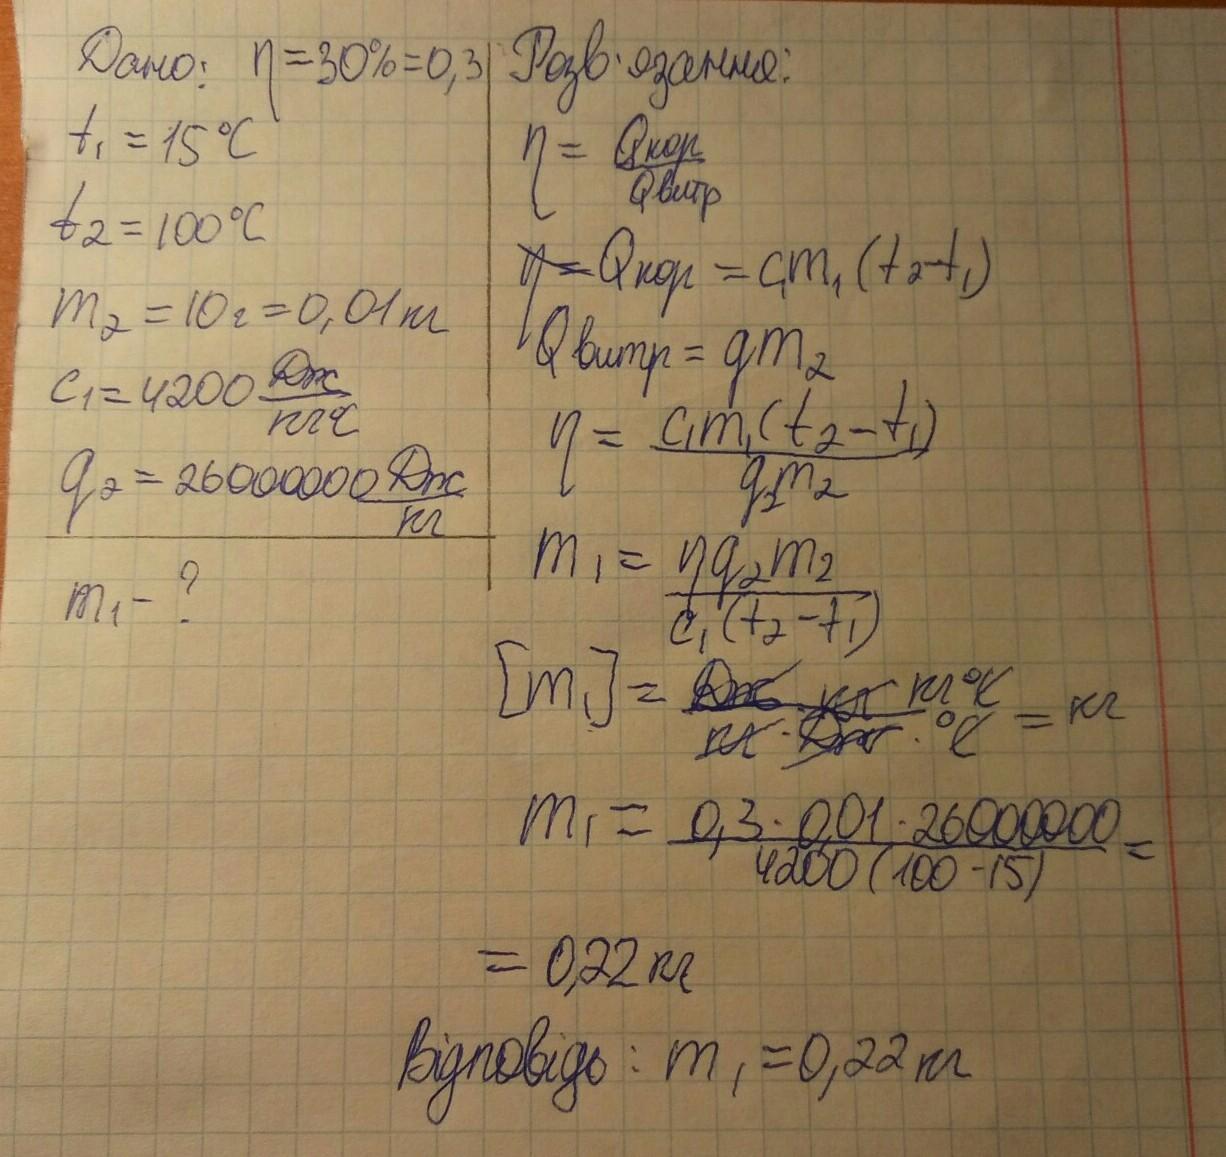 Дано: η=30%=0,3
t₁=15°C
t₂=100°C
m₂=10г=0,01кг
c₁=4200 Дж/кг°C
q₂=26000000 Дж/кг
m₁-?
Розв·язання:
η= Qкор/Qвитр
Qкор=c₁m₁(t₂-t₁)
Qвитр=qm₂
η= c₁m₁(t₂-t₁)/q₂m₂
m₁= ηq₂m₂/c₁(t₂-t₁)
[m₁]= Дж·кг·кг°C/кг·Дж·°C = кг
m₁= 0,3·0,01·26000000/4200(100-15) =
=0,22кг
Відповідь: m₁=0,22кг